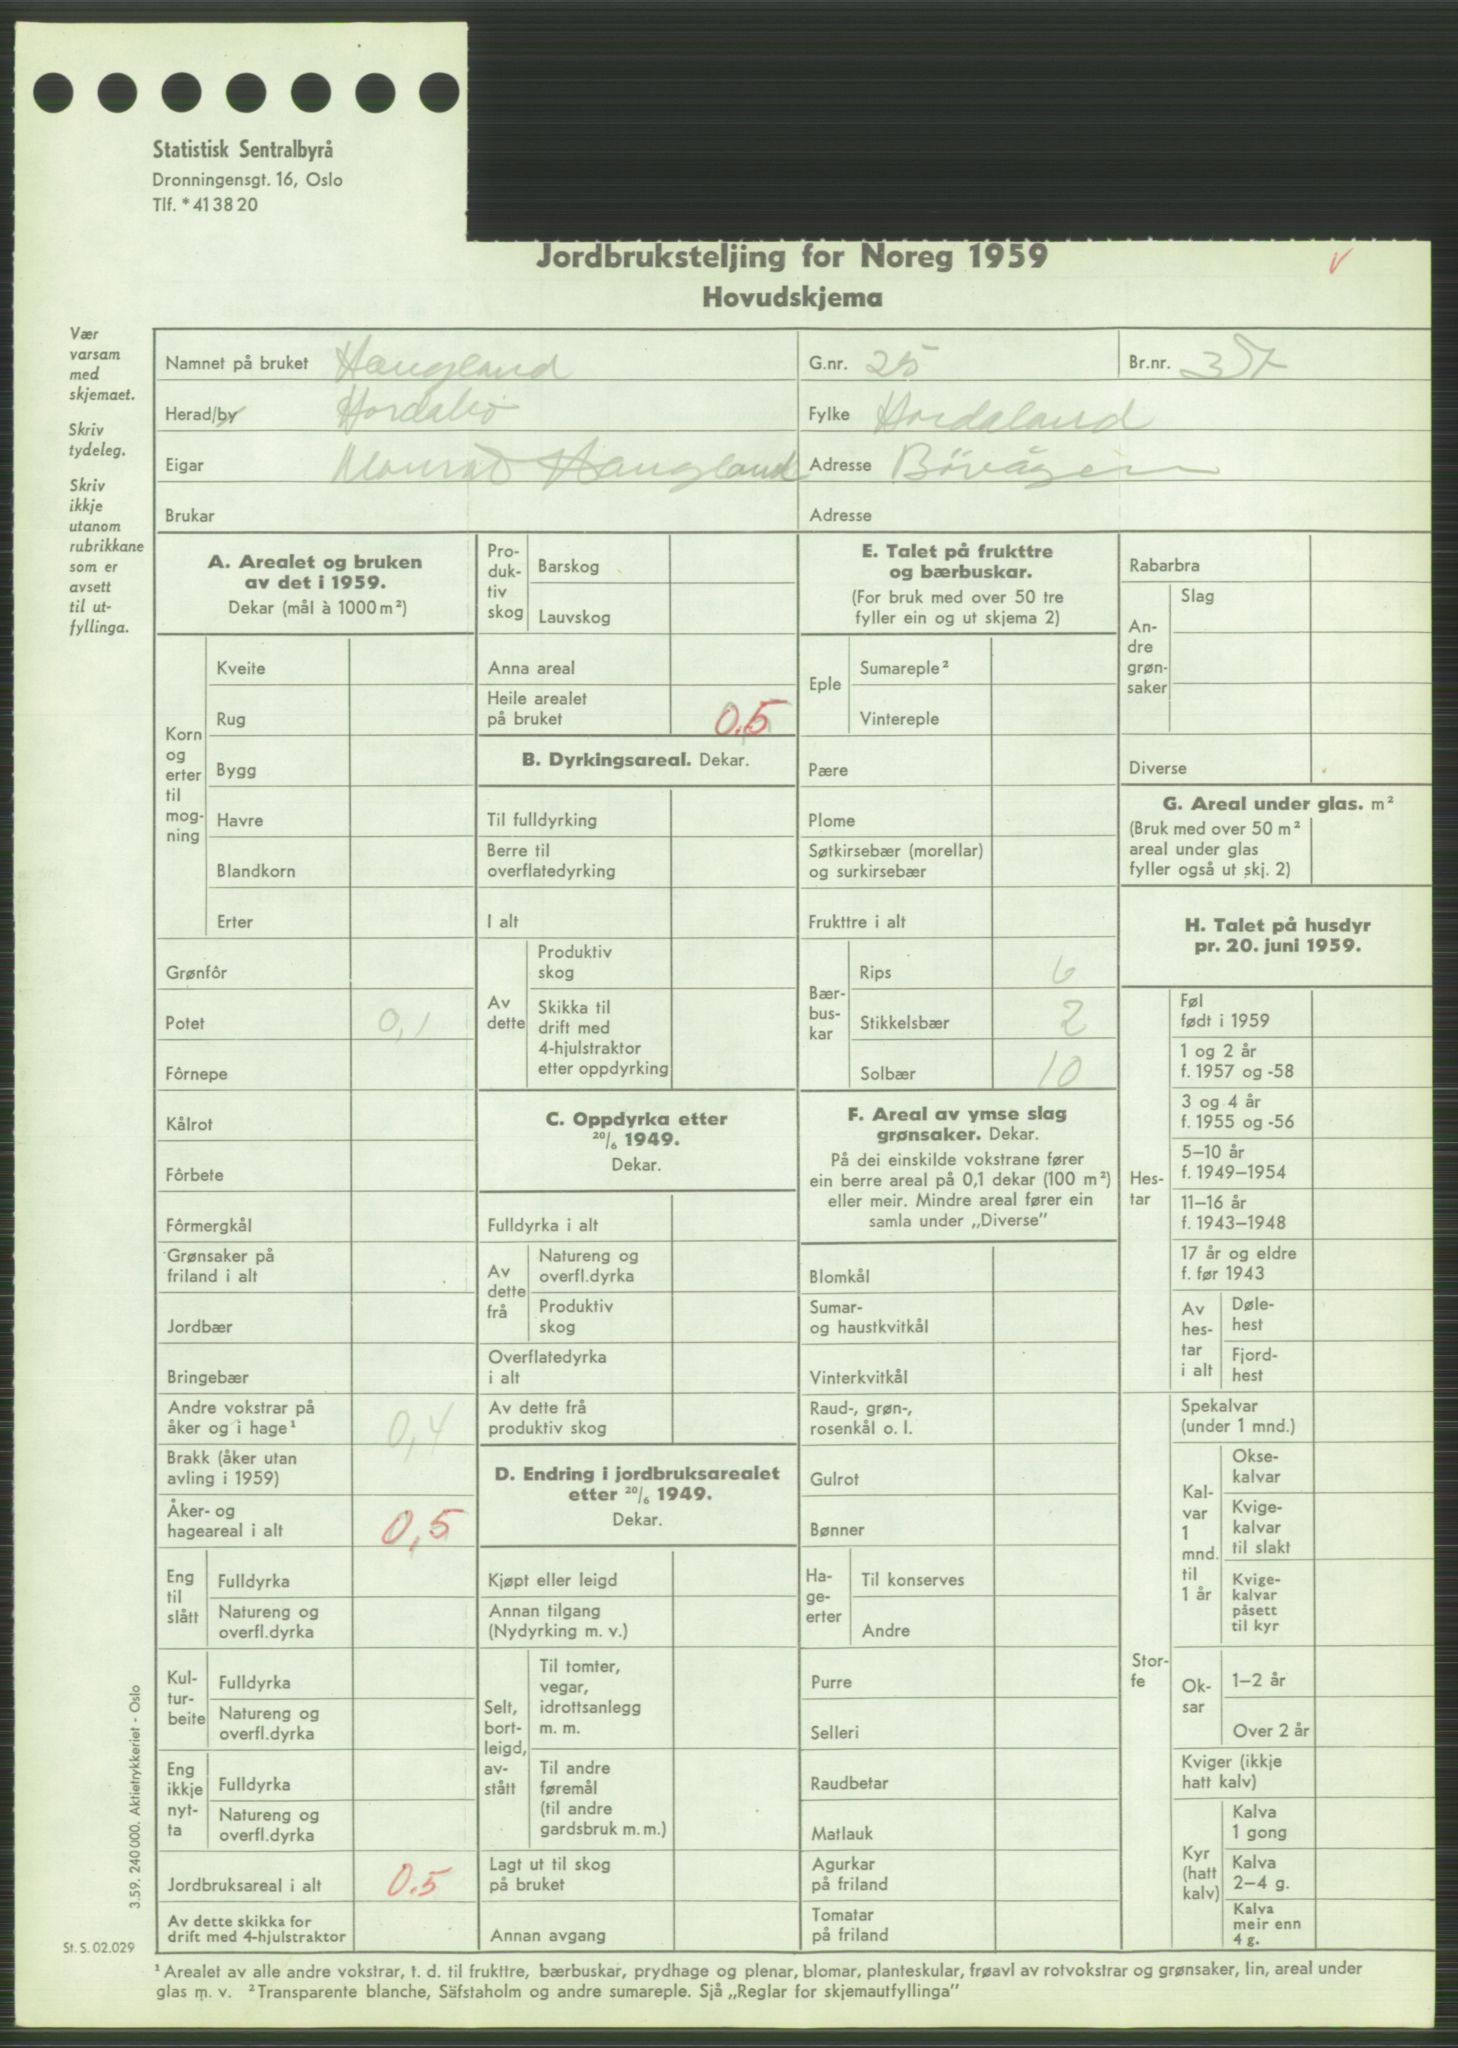 Statistisk Sentralbyrå
Dronningensgt. 16, Oslo
Tlf. * 41 38 20
Jordbruksteljing for Noreg 1959
V
Hovudskjema
Vær
varsam
med
skjemaet.
Skriv
tydeleg.
Skriv
ikkje
utanom
rubrikkane
som er
avsett
til ut-
fyllinga.
Namnet på bruket Haugland
G.nr. 25
Br.nr.
Herad/by Hordabø
Fylke Hordaland
Eigar Haugland
Adresse Bövågen
Brukar
Adresse
A. Arealet og bruken
av det i 1959.
Dekar (mål à 1000 m²)
Korn
og
erter
til
mog-
ning
Kveite
Rug
Bygg
Havre
Blandkorn
Erter
Grønfôr
Potet 0,1
Fôrnepe
Kålrot
Fôrbete
Fôrmergkål
Grønsaker på
friland i alt
Jordbær
Bringebær
Andre vokstrar på
åker og i hage¹ 0,4
Brakk (åker utan
avling i 1959)
Åker- og
hageareal i alt 0,5
Eng
til
slått
Fulldyrka
Natureng og
overfl.dyrka
Kul-
tur-
beite
Fulldyrka
Natureng og
overfl.dyrka
Eng
ikkje
nyt-
ta
Fulldyrka
Natureng og
overfl.dyrka
Jordbruksareal i alt 0.5
Av dette skikka for
drift med 4-hjulstraktor
Pro-
duk-
tiv
skog
Barskog
Lauvskog
Anna areal
Heile arealet
på bruket 0.5
B. Dyrkingsareal. Dekar.
Til fulldyrking
Berre til
overflatedyrking
I alt
Av
dette
Produktiv
skog
Skikka til
drift med
4-hjulstraktor
etter oppdyrking
C. Oppdyrka etter
20/6 1949.
Dekar.
Fulldyrka i alt
Av
dette
frå
Natureng og
overfl.dyrka
Produktiv
skog
Overflatedyrka
i alt
Av dette frå
produktiv skog
D. Endring i jordbruksarealet
etter 20/6 1949.
Dekar.
Kjøpt eller leigd
Annan tilgang
(Nydyrking m. v.)
Selt,
bort-
leigd,
av-
stått
Til tomter,
vegar,
idrottsanlegg
m. m.
Til andre
føremål
(til andre
gardsbruk m. m.)
Lagt ut til skog
på bruket
Annan avgang
E. Talet på frukttre
og bærbuskar.
(For bruk med over 50 tre
fyller ein og ut skjema 2)
Eple
Sumareple²
Vintereple
Pære
Plome
Søtkirsebær (morellar)
og surkirsebær
Frukttre i alt
Bær-
bus-
kar
Rips 6
Stikkelsbær 2
Solbær 10
F. Areal av ymse slag
grønsaker. Dekar.
På dei einskilde vokstrane fører
ein berre areal på 0,1 dekar (100 m²)
eller meir. Mindre areal fører ein
samla under „Diverse”
Blomkål
Sumar-
og haustkvitkål
Vinterkvitkål
Raud-, grøn-,
rosenkål o. l.
Gulrot
Bønner
Ha-
ge-
erter
Til konserves
Andre
Purre
Selleri
Raudbetar
Matlauk
Agurkar
på friland
Tomatar
på friland
Rabarbra
An-
dre
grøn-
saker
Slag
Diverse
G. Areal under glas. m²
(Bruk med over 50 m²
areal under glas
fyller også ut skj. 2)
H. Talet på husdyr
pr. 20. juni 1959.
Hes-
tar
Føl
født i 1959
1 og 2 år
f. 1957 og -58
3 og 4 år
f. 1955 og -56
5–10 år
f. 1949–1954
11–16 år
f. 1943–1948
17 år og eldre
f. før 1943
Av
hes-
tar
i alt
Døle-
hest
Fjord-
hest
Stor-
fe
Spekalvar
(under 1 mnd.)
Kal-
var
1
mnd.
til
1 år
Okse-
kalvar
Kvige-
kalvar
til slakt
Kvige-
kalvar
påsett
til kyr
Ok-
sar
1–2 år
Over 2 år
Kviger (ikkje
hatt kalv)
Kyr
(hatt
kalv)
Kalva
1 gong
Kalva
2–4 g.
Kalva
meir enn
4 g.
3.59. 240 000. Aktietrykkeriet - Oslo
St. S. 02.029
¹ Arealet av alle andre vokstrar, t. d. til frukttre, bærbuskar, prydhage og plenar, blomar, planteskular, frøavl av rotvokstrar og grønsaker, lin, areal under
glas m. v. ² Transparente blanche, Säfstaholm og andre sumareple. Sjå „Reglar for skjemautfyllinga”